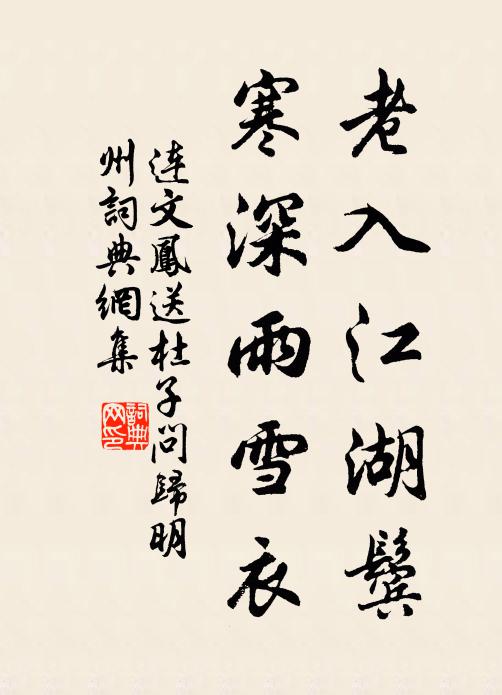 老入江湖鬢
寒深雨雪衣
連文鳳送杜子問歸明
州詞典網集
詞典
网印